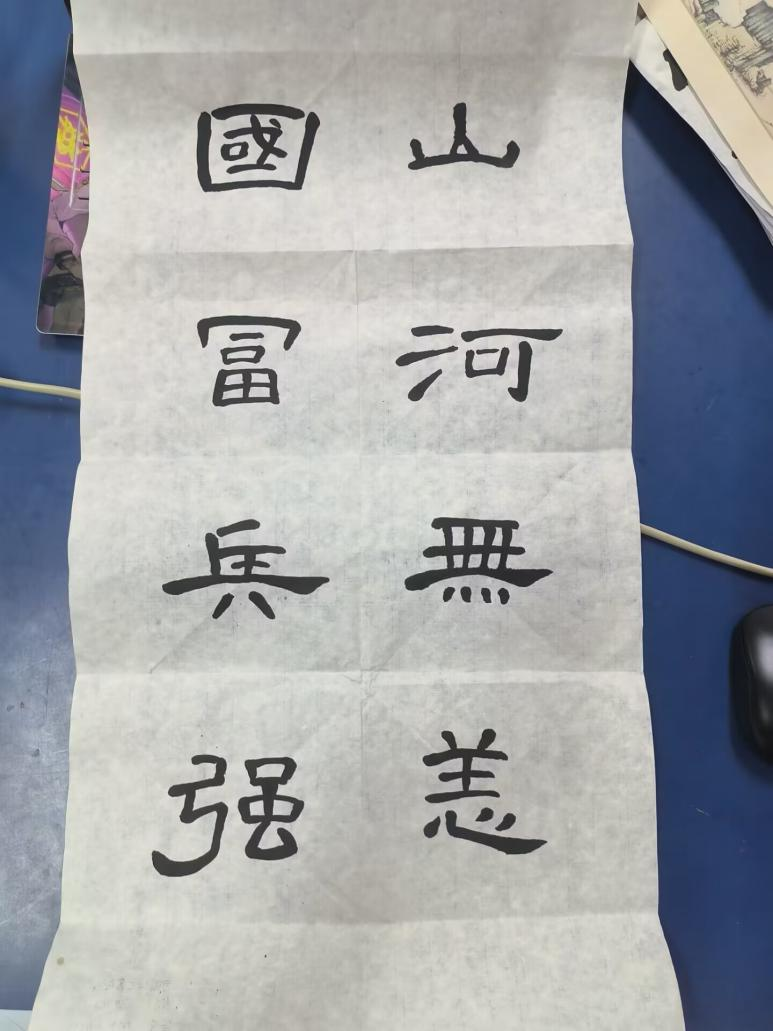 山河無恙
國冨兵强